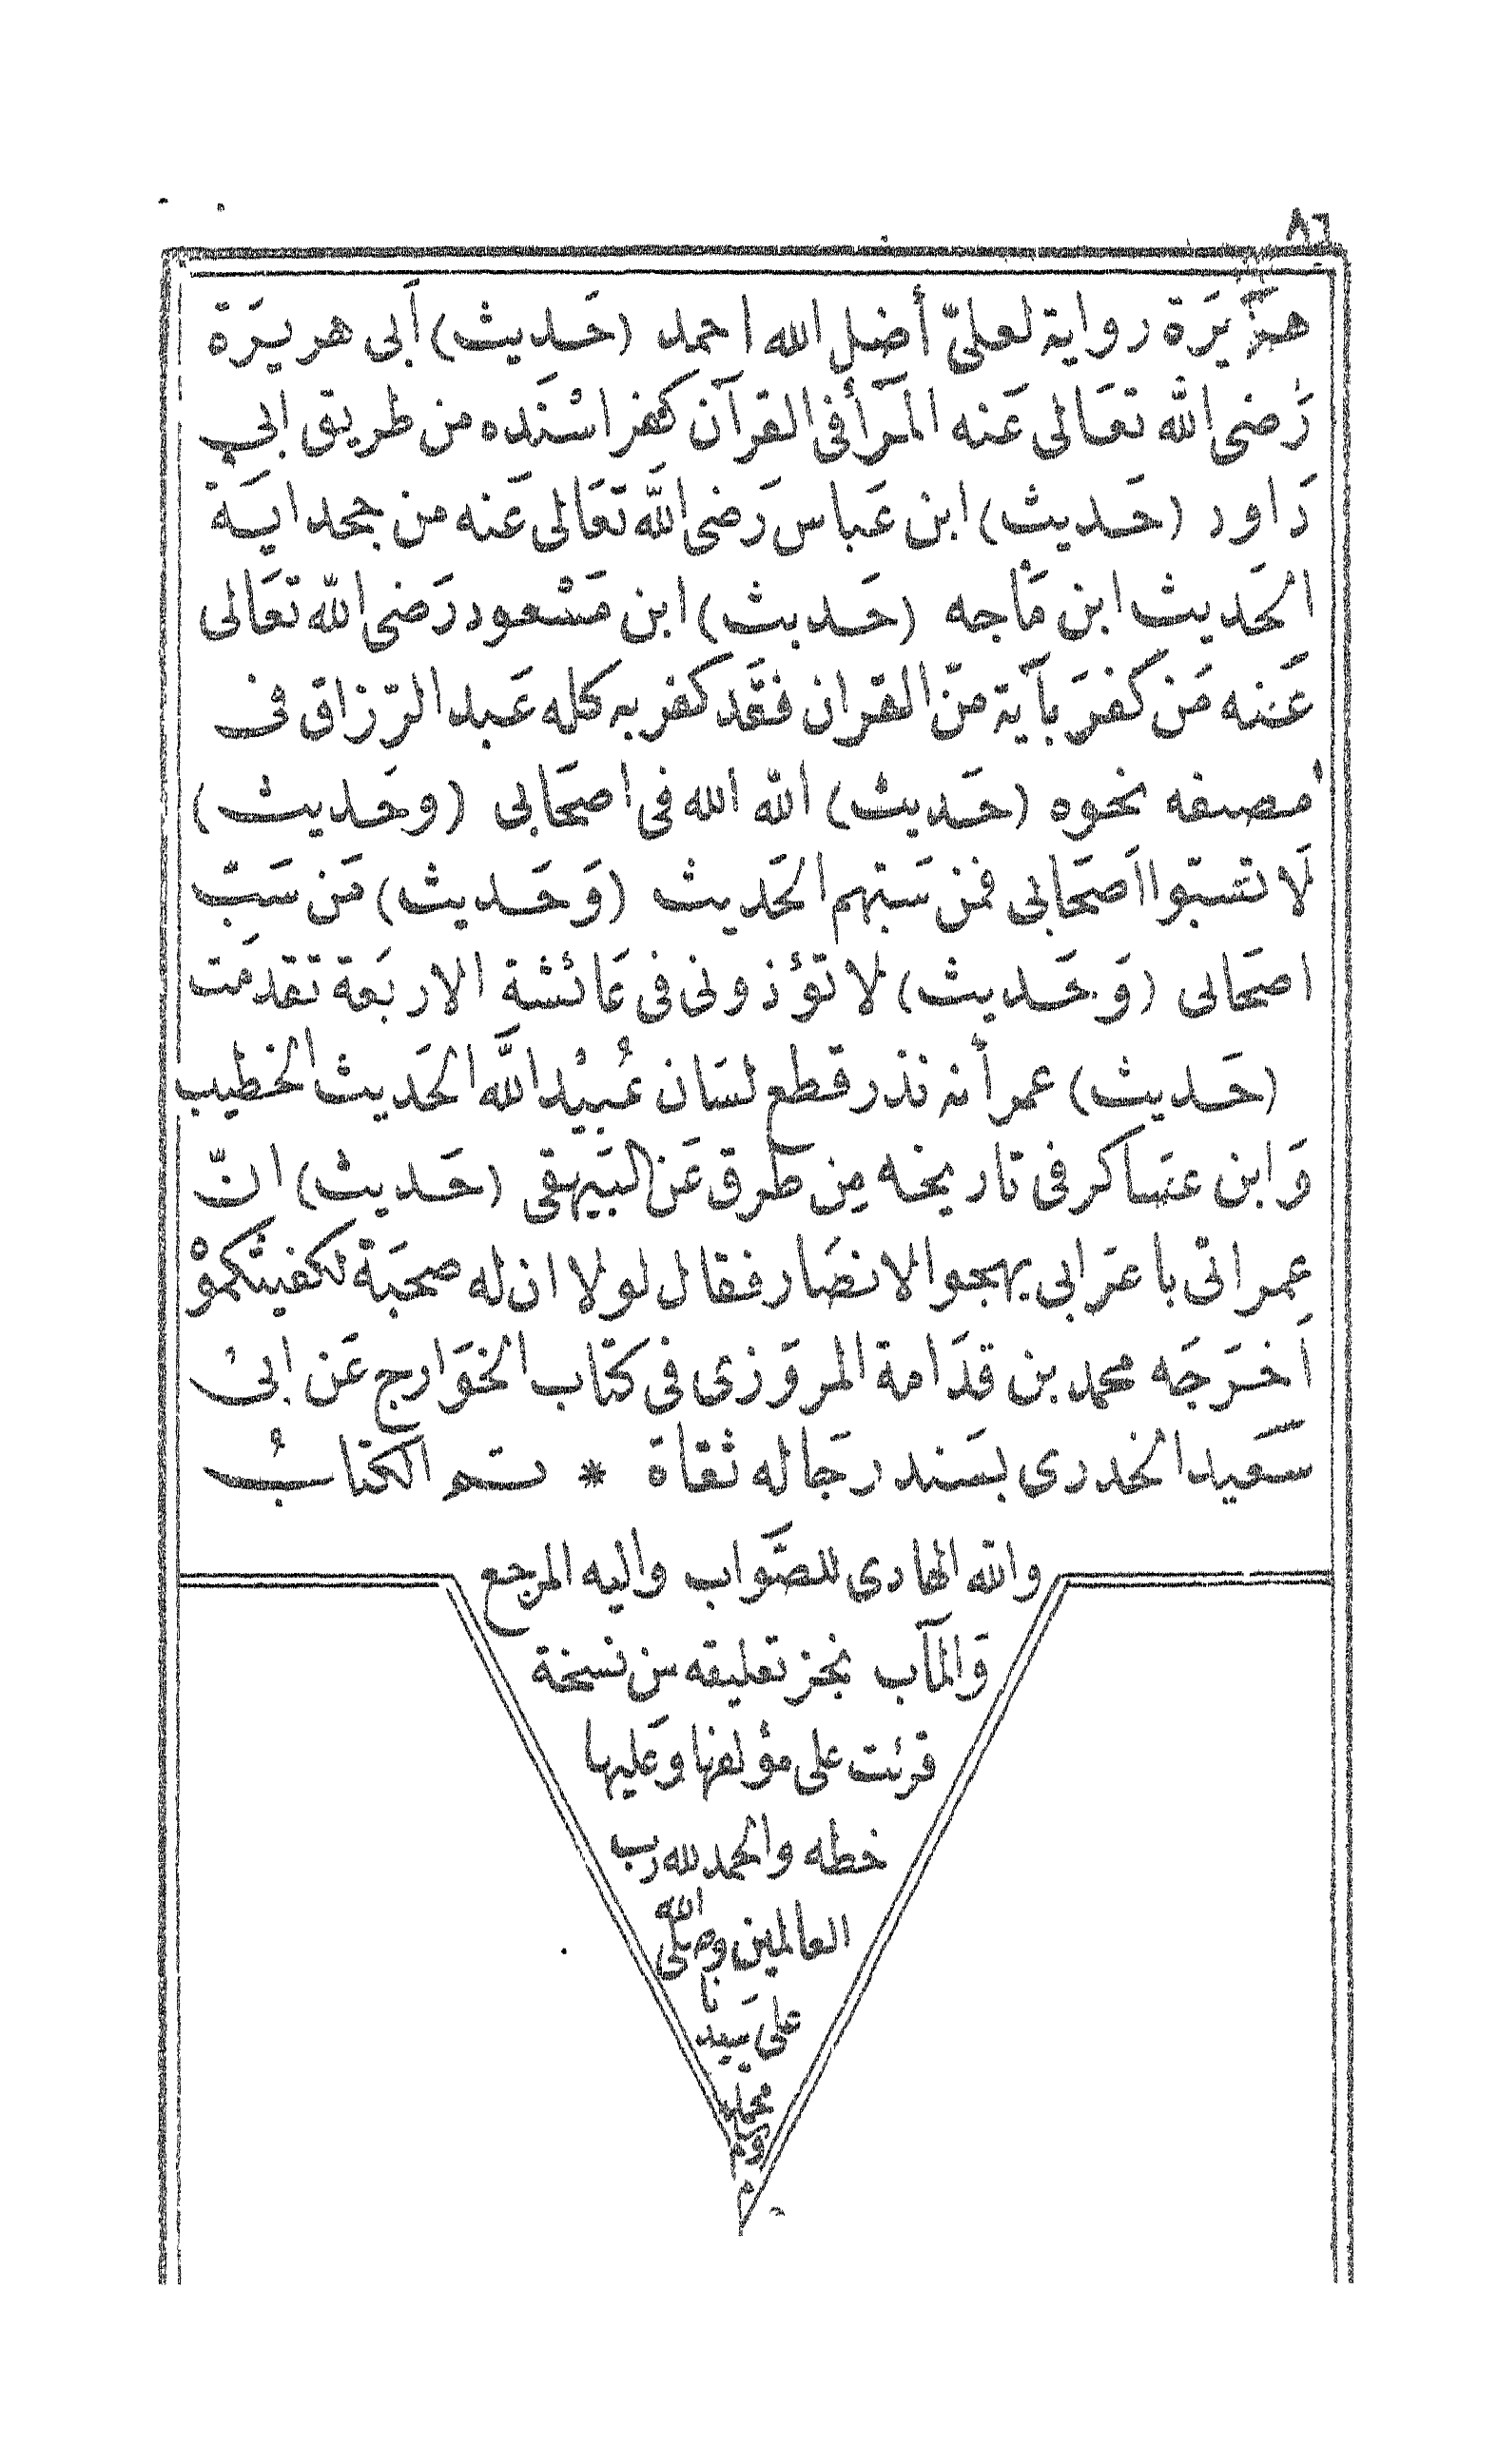 ٨٦
هريَرة رواية لعلىّ أضل الله احمد (حَديث) أبى هريرَة
رَضى الله تعَالى عَنه المرَأ فى القرآن كفر اسْنَده من طريق ابى
دَاود (حَديث) ابن عَباس رَضى الله تعَالى عَنه من جحد ايَة
الحَديث ابن مَاجه (حَديث) ابن مَسْعود رَضى الله تعَالى
عَنه مَن كفرَ بآية منّ القران فقَد كفر به كله عَبد الرّزاق فى
مصنفه نحوه (حَديث) الله الله فى اصحَابى (وحَديث)
لَا تسّبوا اَصحَابى فمن سَبهم الحَديث (وَحَديث) مَن سَبّ
اصحَابى (وَحَديث) لا تؤذونى فى عَائشة الاربَعة تقدمَت
(حَديث) عمر أنه نذر قطع لسَان عُبيْد الله الحَديث الخطيب
وَابن عسَاكر فى تاريخه مِن طرق عَن البَيهقى (حَديث) انّ
عمر اتى باعرَابى يهجوا الانصَار فقال لولا ان له صحبَة لكفيتكموْ
اَخرَجَه محمد بن قدَامة المروَزى فى كتاب الخوَارج عَن ابىْ
سَعيد الخدرى بسَند رجَاله ثقاة * تم الكتابُ
والله الهادى للصَّواب واليه المرجع
وَالمآب نجز تعليقه من نسخة
قرئت على مؤلفها وعَليها
خطه والحمد لله رب
العالمين وصلى الله
على سَيدنا
محمد
وم
م